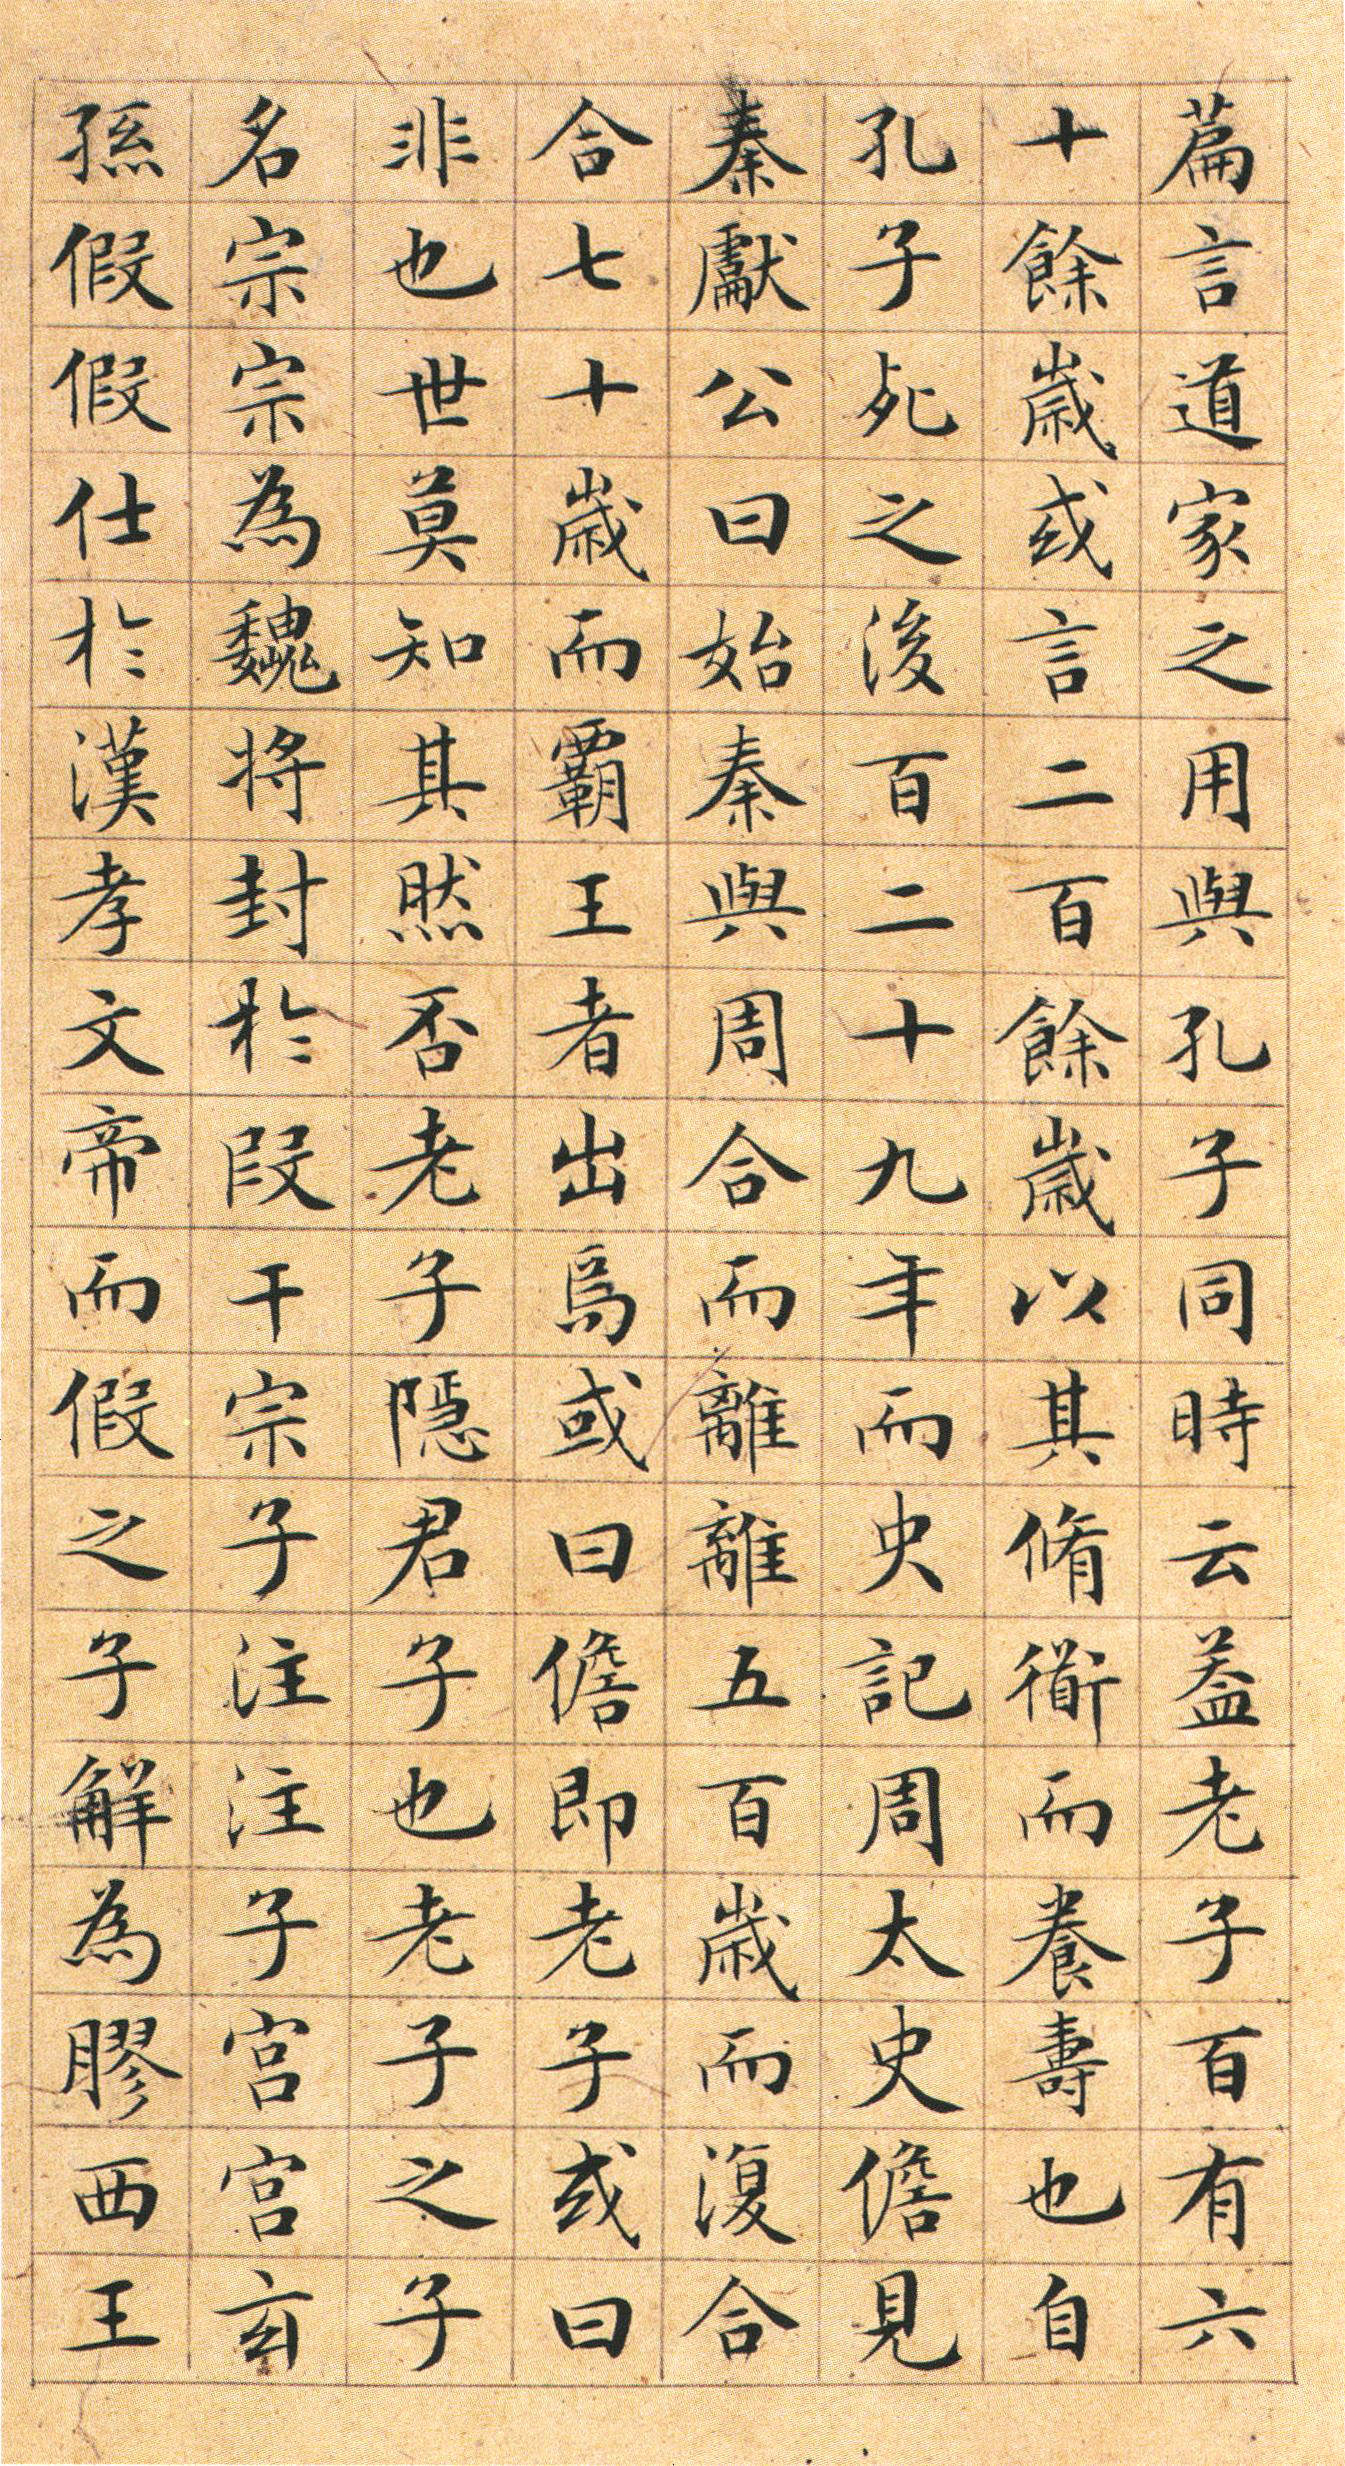 篇言道家之用與孔子同時云葢老子百有六
十餘歲或言二百餘歲以其脩衜而養壽也自
孔子死之後百二十九年而史記周太史儋見
秦獻公曰始秦與周合而離離五百歲而復合
合七十歲而霸王者出焉或曰儋即老子或曰
非也世莫知其然否老子隱君子也老子之子
名宗宗為魏將封於段干宗子注注子宫宫玄
孫假假仕於漢孝文帝而假之子解為膠西王